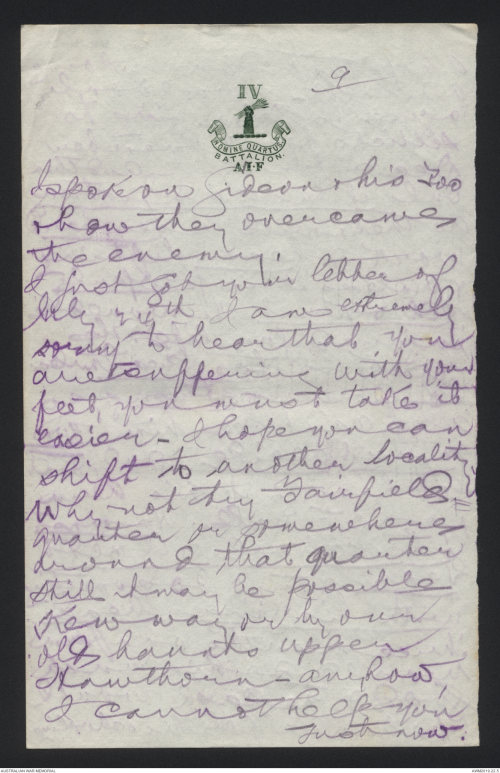 9
IV
NOMINE QUARTUS
BATTALION.
A.I.F
I spoke on Gideon & his 300
& how they overcame
the enemy.
I just got your letter of
July 24th I am extremely
sorry to hear that you
are suffering with your
feet, you must take it
easier - I hope you can
shift to another locality
Why not try Fairfield
quarter or somewhere
around that quarter
still it may be possible
Kew way or by our
old haunts upper
Hawthorn - anyhow,
I cannot help you
Just now.
AUSTRALIAN WAR MEMORIAL